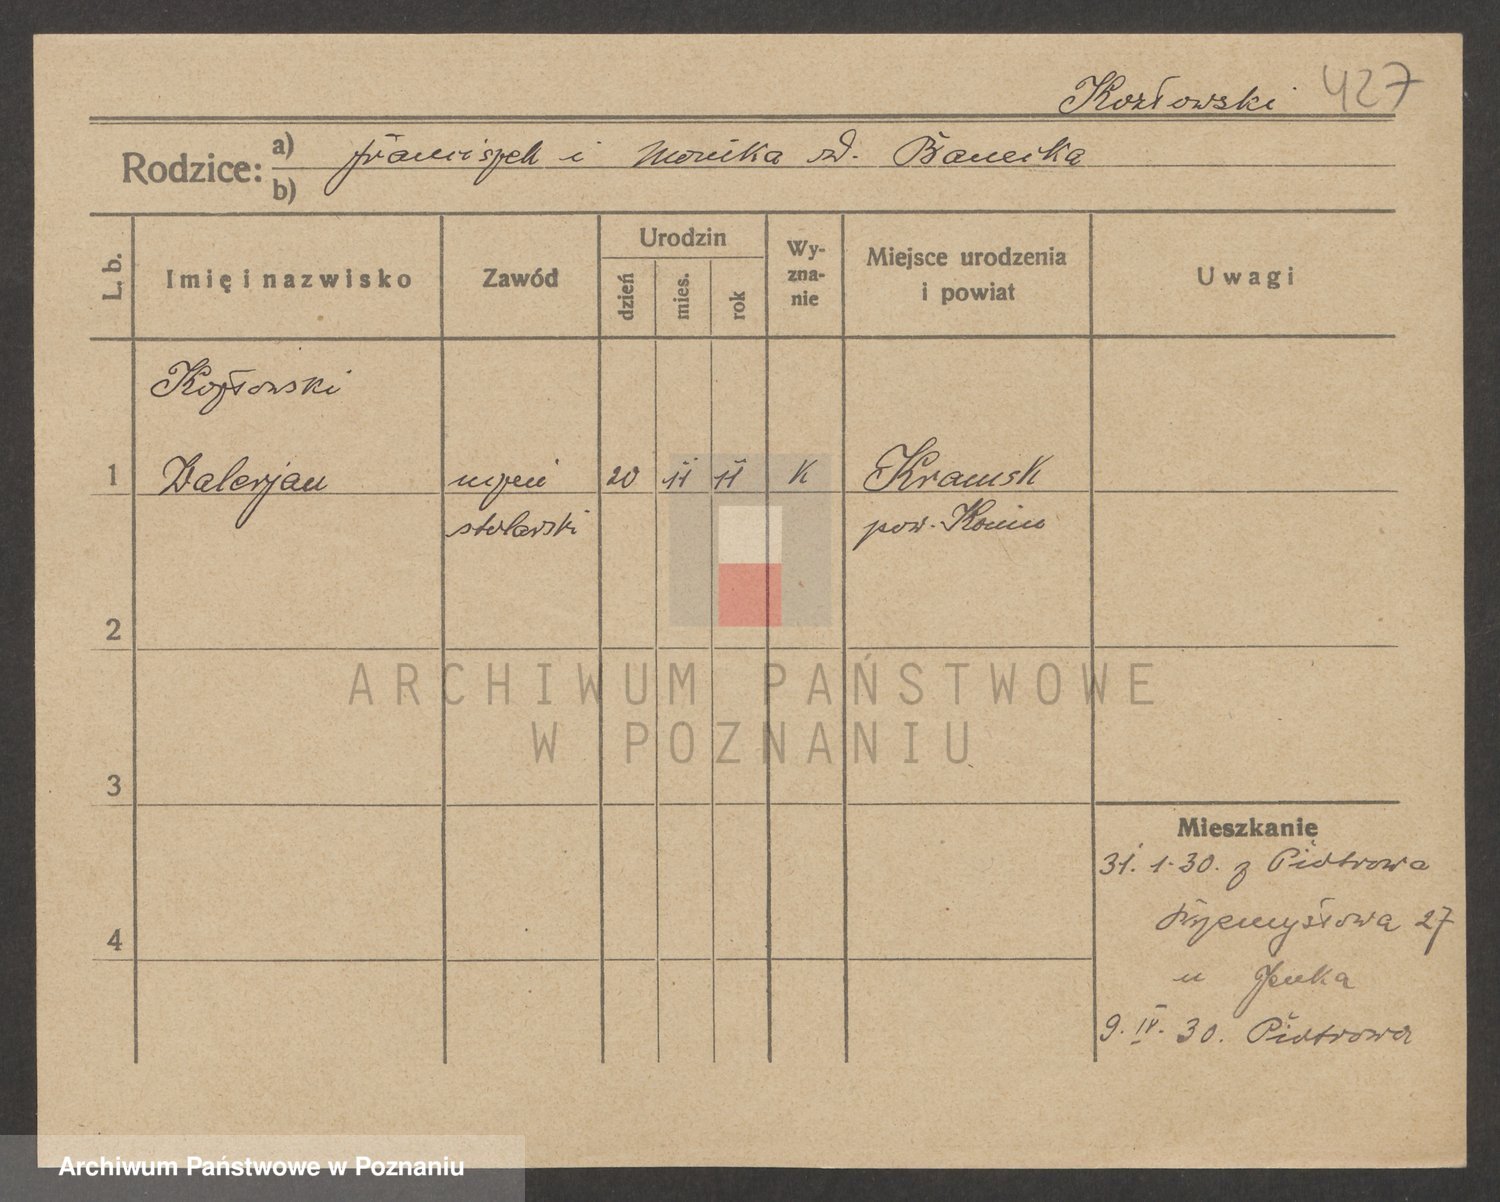 Kozłowski 427
Rodzice: a) Franciszek i Monika zd. Banecka
b)
L. b. Imię i nazwisko Zawód Urodzin dzień mies. rok Wyznanie Miejsce urodzenia i powiat Uwagi
Kozłowski
1 Walerjan uczeń 20 11 11 K Kramsk
stolarski pow. Konin
2
ARCHIWUM PAŃSTWOWE
W POZNANIU
3
Mieszkanie
31. 1. 30. z Piotrowa
4 Przemysłowa 27
u
9. IV. 30. Piotrowa
Archiwum Państwowe w Poznaniu